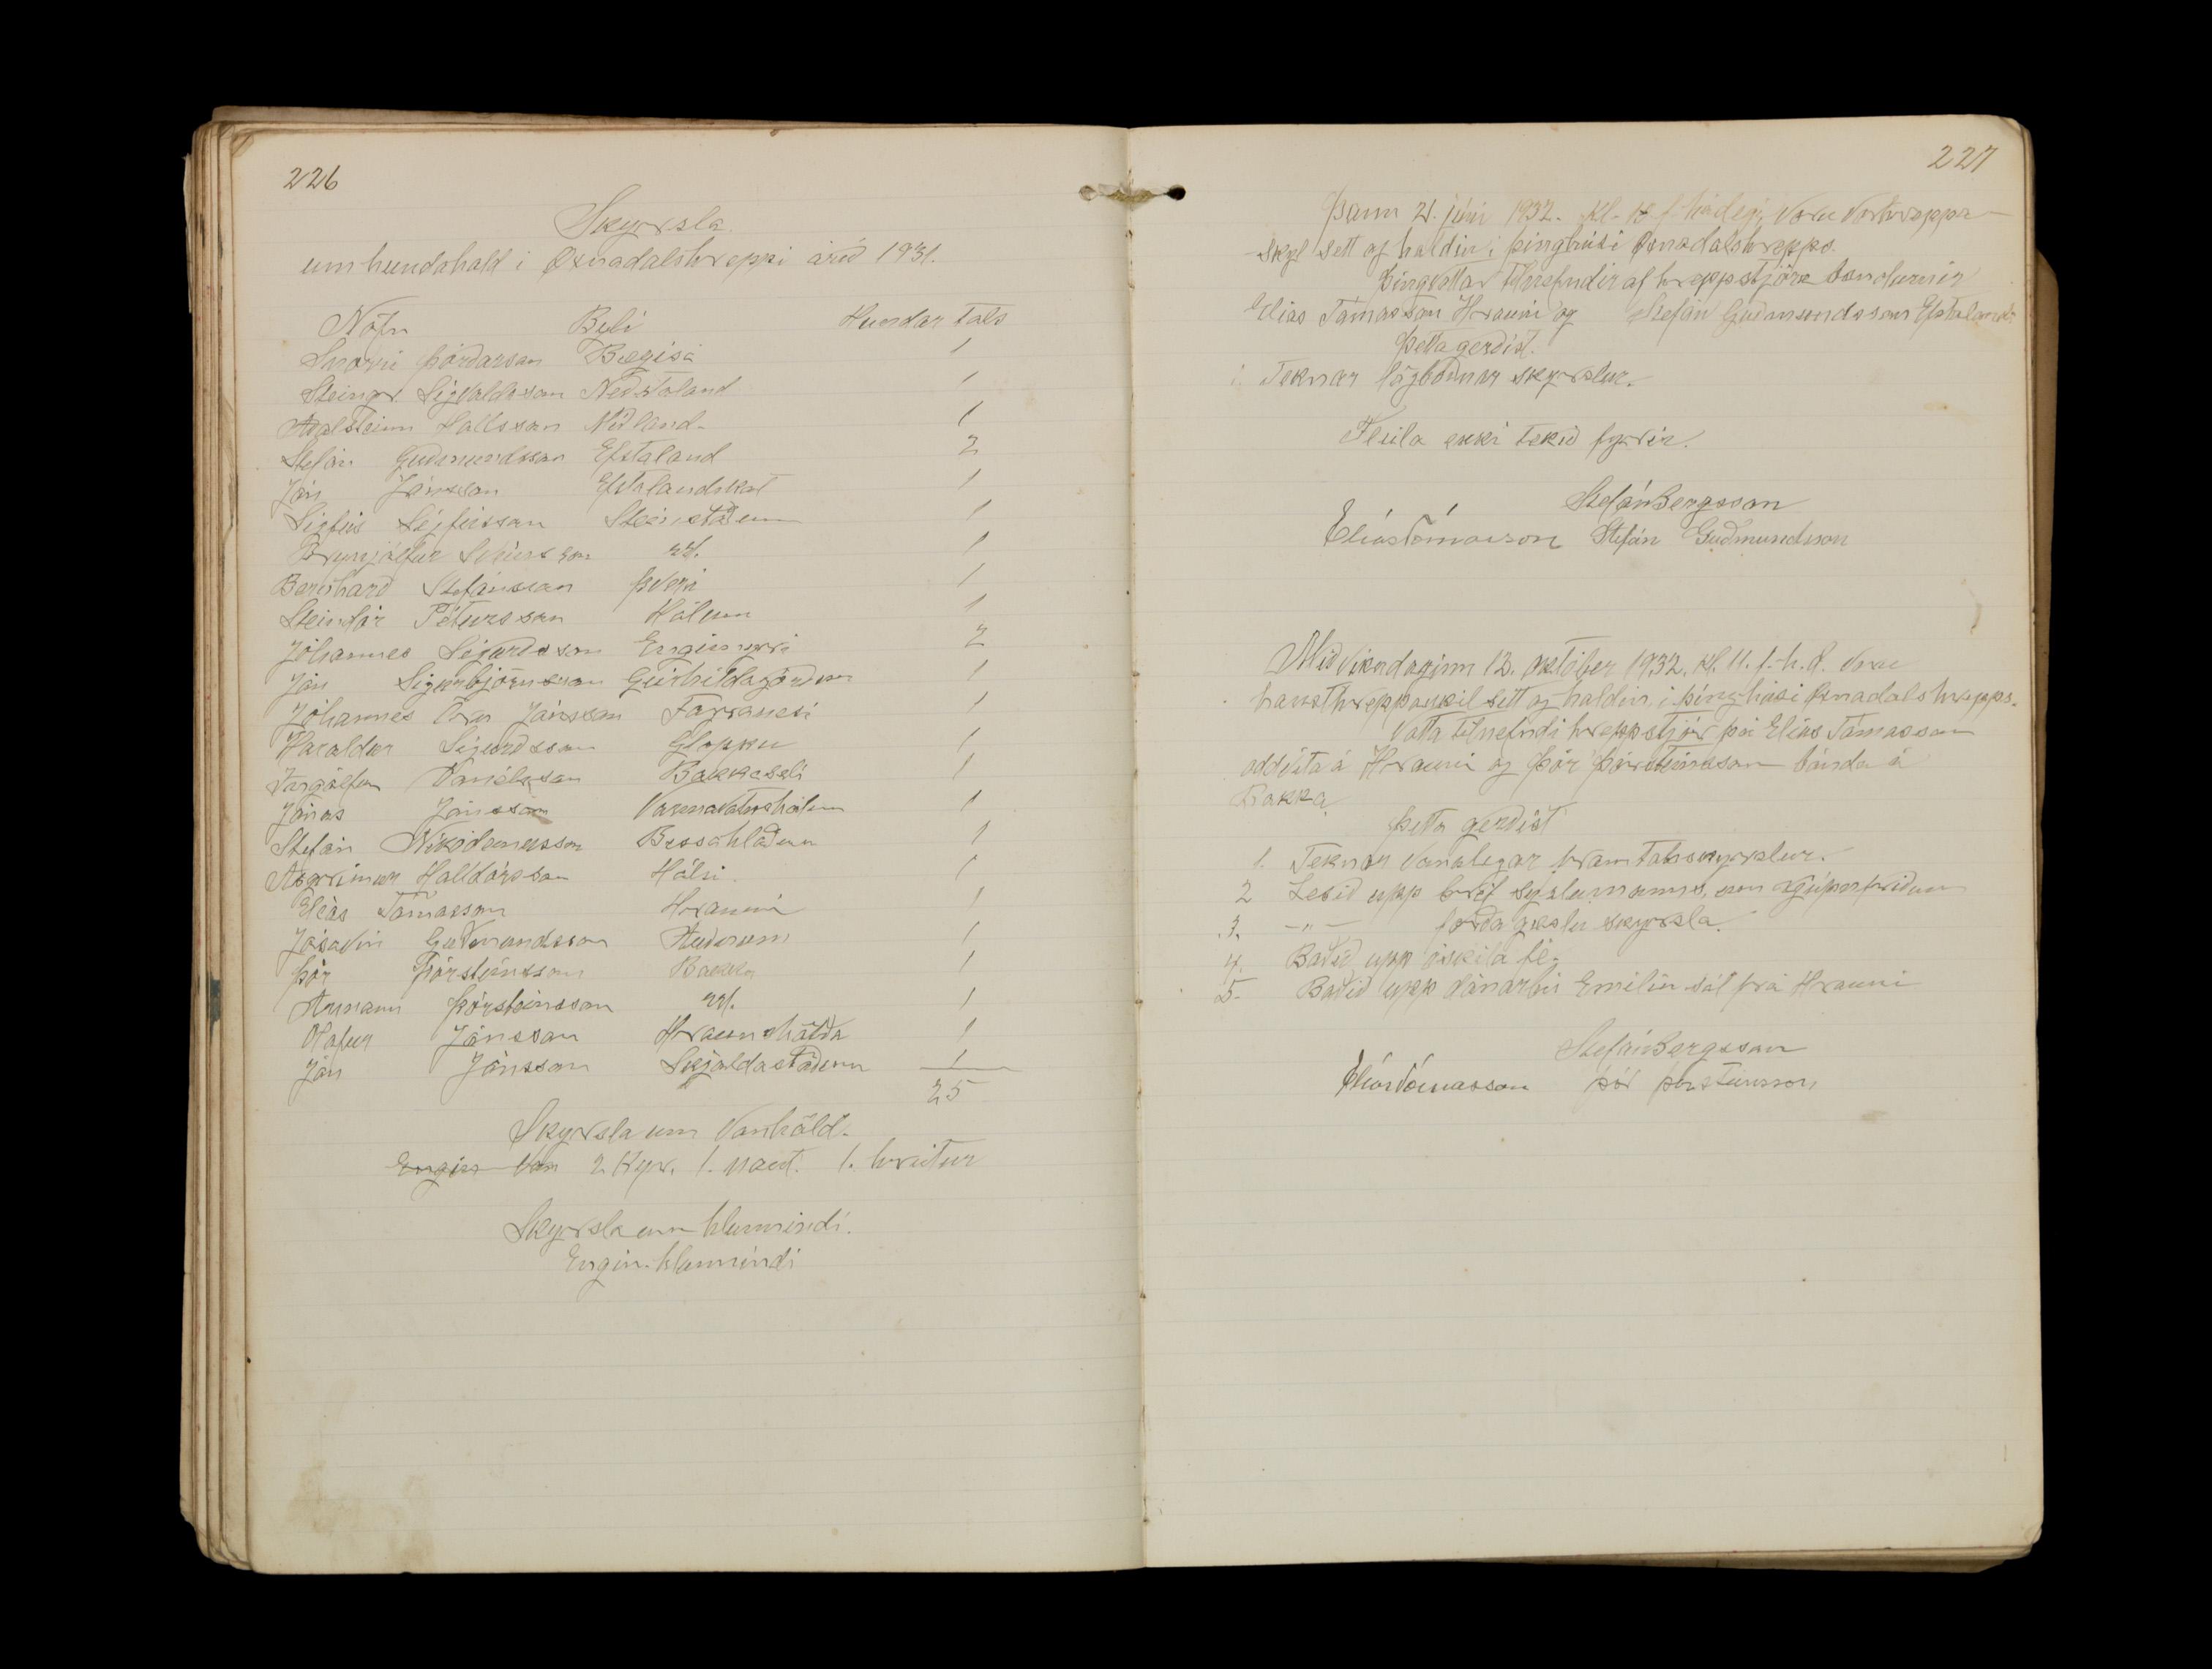 226
Skyrsla.
um hundahald í Öxnadalshreppi árið 1931.
Nöfn Býli Hundar tals
Snorri Þórdarson Bægisá 1
Steingr. Sigvaldason Nedstaland 1
Adalsteinn Hallsson Midland- 1
Stefán Guðmundsson Efstaland 2
Jón Jónsson Efstalandskot 1
Sigfús Sigfússon Steinstöðum 1
Brynjólfur Sveinsson s.st. 1
Bernhard Stefánsson Þverá 1
Steindór Pétursson Hólum 1
Jóhannes Sigurdsson Engimyri 2
Jón Sigurbjörnsson Geirhildagörðum 1
Jóhannes Örn Jónsson Fagranesi 1
Haraldur Sigurdsson Gloppu 1
Ingólfur Daníelsson Bakkaseli 1
Jónas Jónsson Varmavatnshólum 1
Stefán Nikódemusson Bessahlöðum 1
Asgrímur Halldórsson Hálsi 1
Elías Tómasson Hrauni 1
Jósavin Guðmundsson Auðnum 1
Þór Þórsteinsson Bakka 1
Armann Þórsteinsson s.st. 1
Olafur Jónsson Hraunshöfða 1
Jón Jónsson Skjaldastöðum 1
25
Skyrsla um Vanhöld.
Engin Van 2 Kyr. 1. naut. 1. hrútur
Skyrsla um hlunnindi.
Engin hlunnindi
227
Þann 21. júní 1932. Kl. f. hádegi, voru vorhreppa-
skyl sett og haldin í þinghúsi Öxnadalshrepps.
Þingvottar tilnefndir af hreppstjóra bændurnir
Elías Tómasson Hrauni og Stefán Guðmundsson Efstalandi
Þetta gerdist.
1. Teknar lögboðnar skyrslur.
Fleira ekki tekið fyrir.
Stefán Bergsson
Elías Tómasson Stefán Guðmundsson
Miðvikudaginn 12. október 1932, Kl. 11. f. h. d. Voru
hausthreppaskil sett og haldin í þinghúsi Öxnadalshrepps.
Votta tilnefndi hreppstjór þá Elías Tómasson
oddvita á Hrauni og Þór Þórsteinsson bónda á
Bakka
Þetta gerdist
1. Teknar Vanalegar framtalsskyrslur.
2 Lesið upp bréf sýslumanns, um rjúpnafriðun
3. -"- forðagæslu skyrsla.
4. Boðið upp óskila fé.
5. Boðið upp dánarbú Emilíu sál frá Hrauni
Stefán Bergsson
Elías Tómasson Þór Þorsteinsson